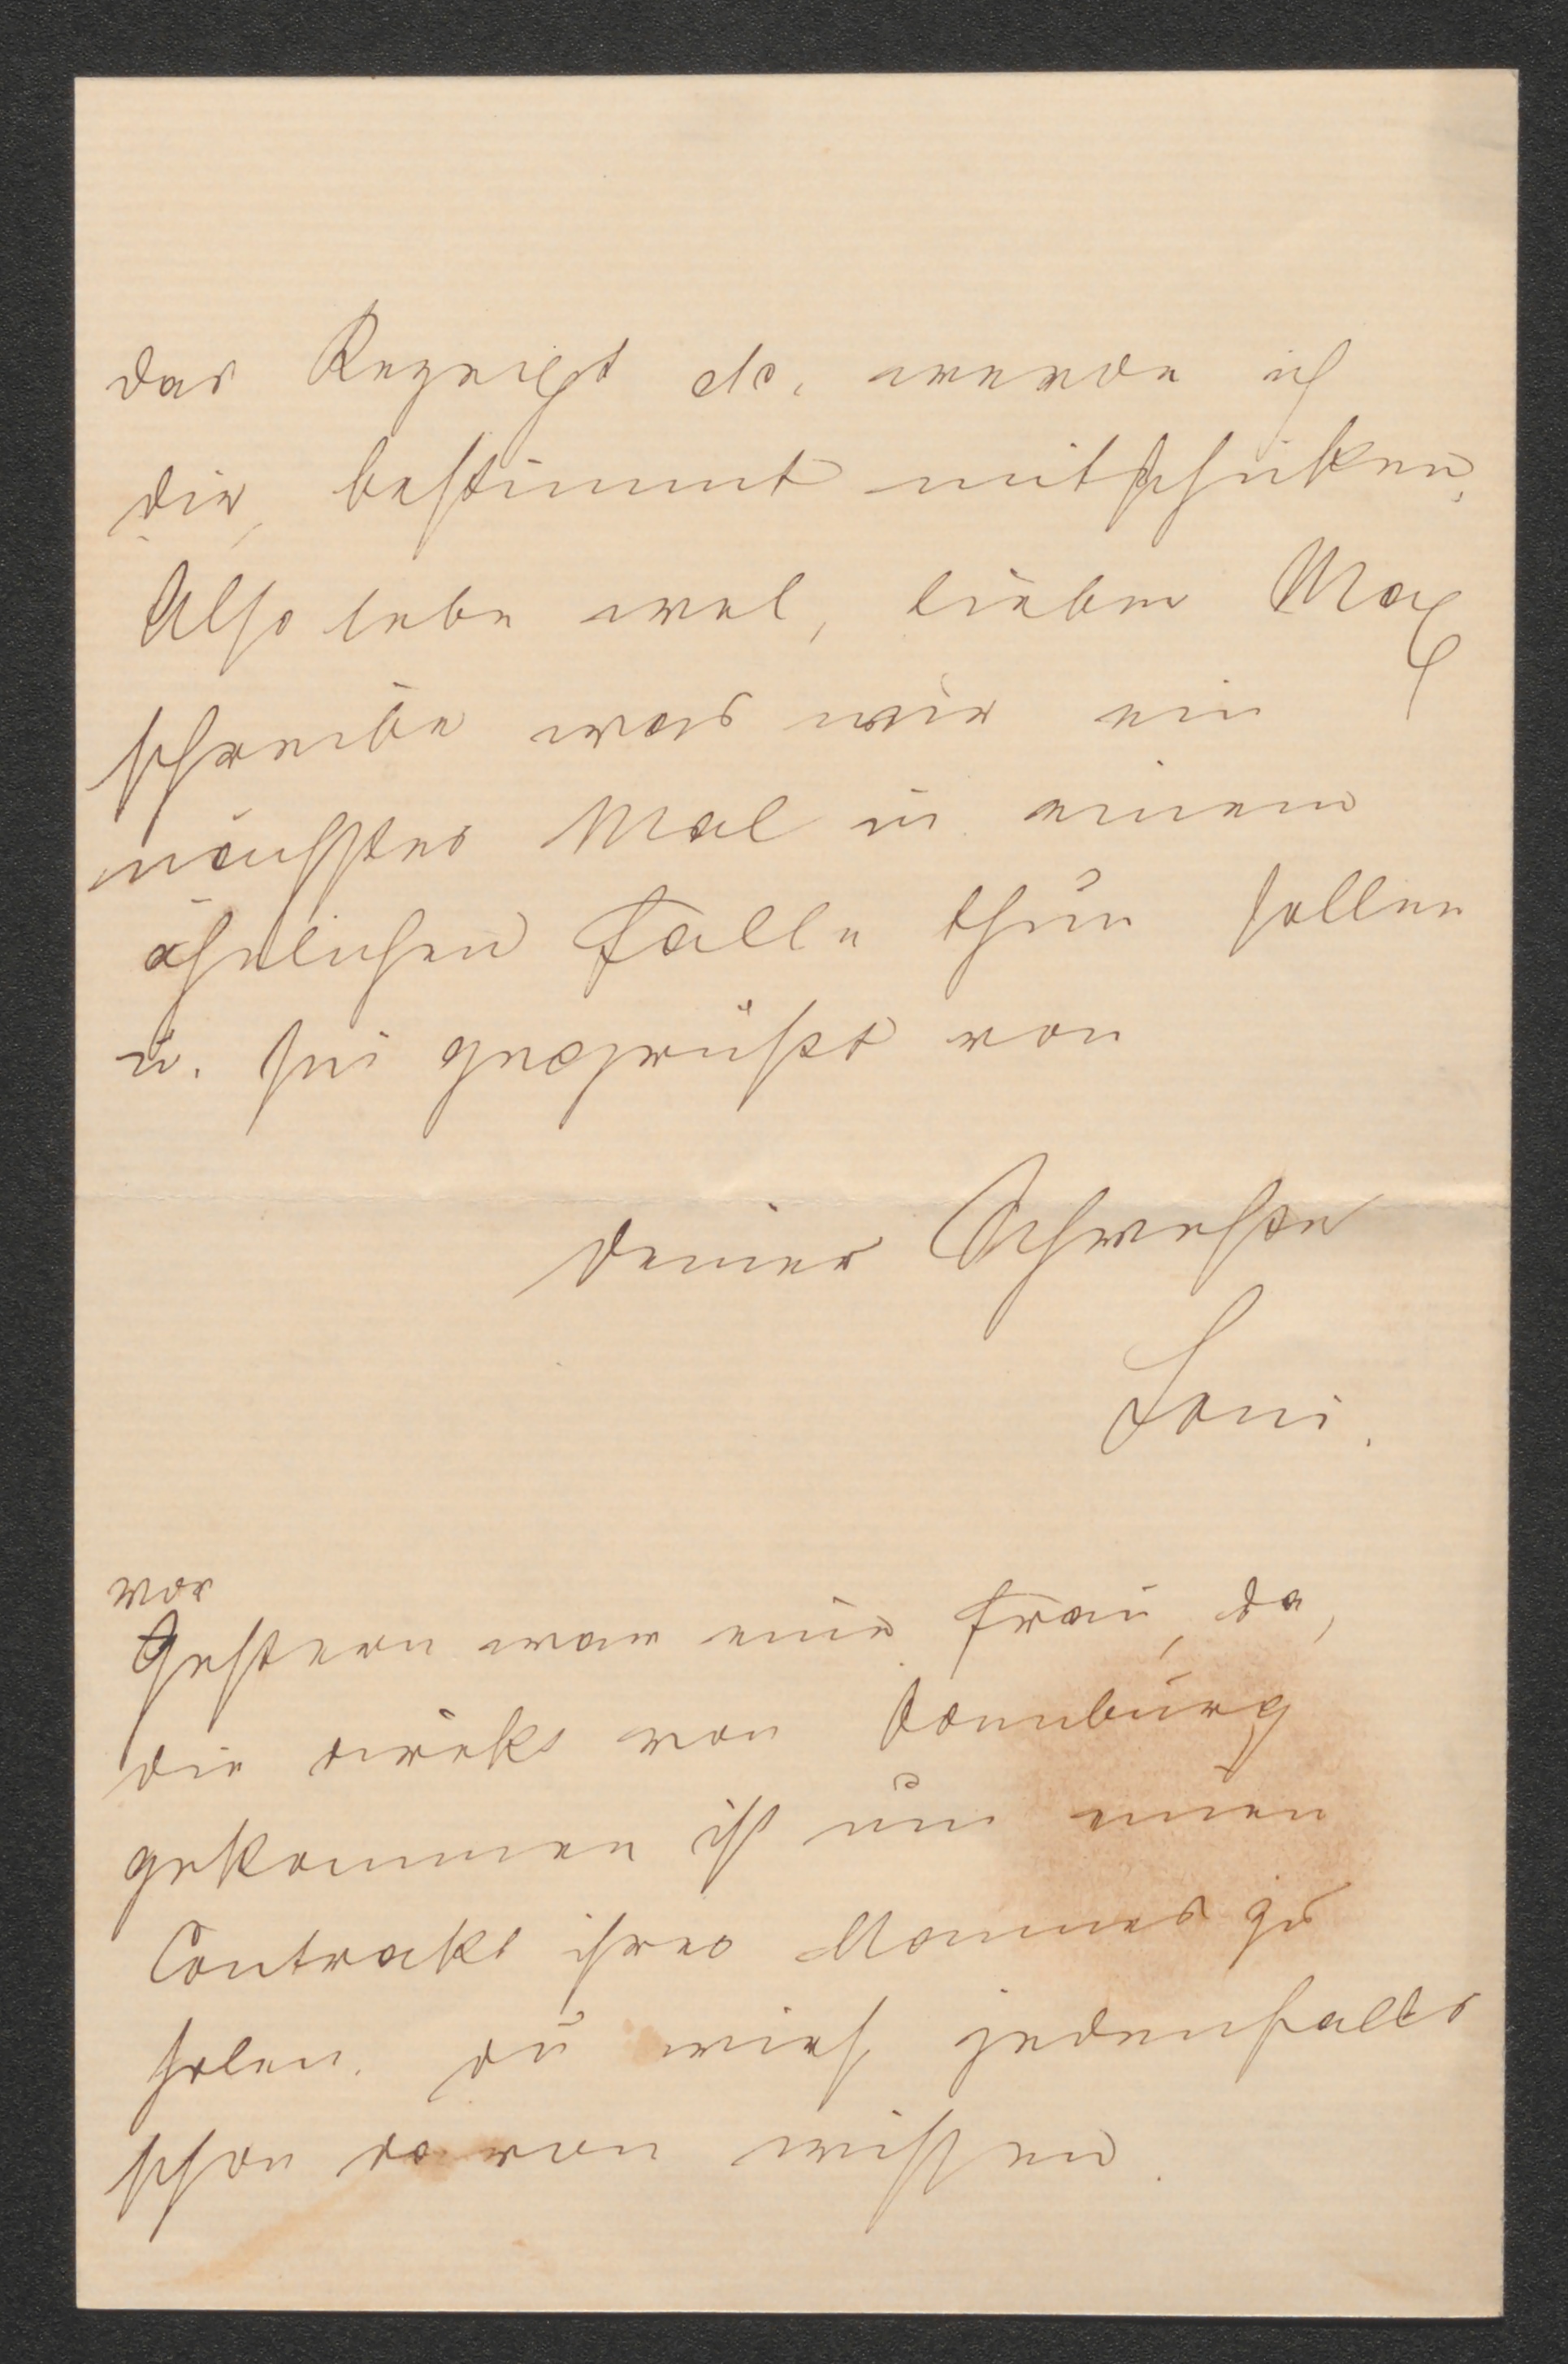 das Rezeipt etc. werde ich
dir bestimmt mitschiken.
Also lebe wol, lieber Max
schreibe was wir ein
nächstes Mal in einem
ähnlichen Falle thun sollen
u. sei gegrüßt von
deiner Schwester
Loni.
vor
Gestern war eine Frau da,
die direkt von
gekommen ist um einen
Contrakt ihres Mannes zu
holen. du wirst jedenfalls
schon davon wissen.